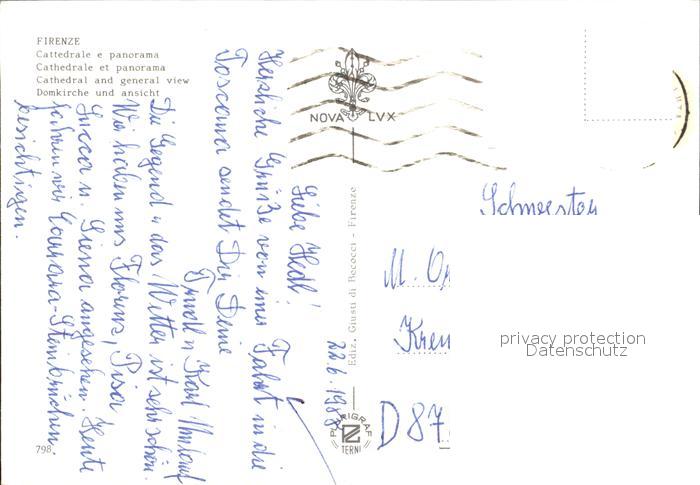 FIRENZE
Cattedrale e panorama
Cathédrale et panorama
Cathedral and general view
Domkirche und ansicht
NOVA LVX
22.6.1988
Liebe Hedl!
Herzliche Grüße von einer Fahrt in die
Toscana sendet Dir Deine
Karl
Die Gegend u. das Wetter ist sehr schön.
Wir haben uns Florenz, Pisa
Lucca u. Siena angesehen. Heute
fahren wir Carrara-Steinbrüche
besichtigen.
798
Ediz. Giusti di Becocci - Firenze
PLURIGRAF
TERNI
Schwester
M.
D 87
privacy protection
Datenschutz